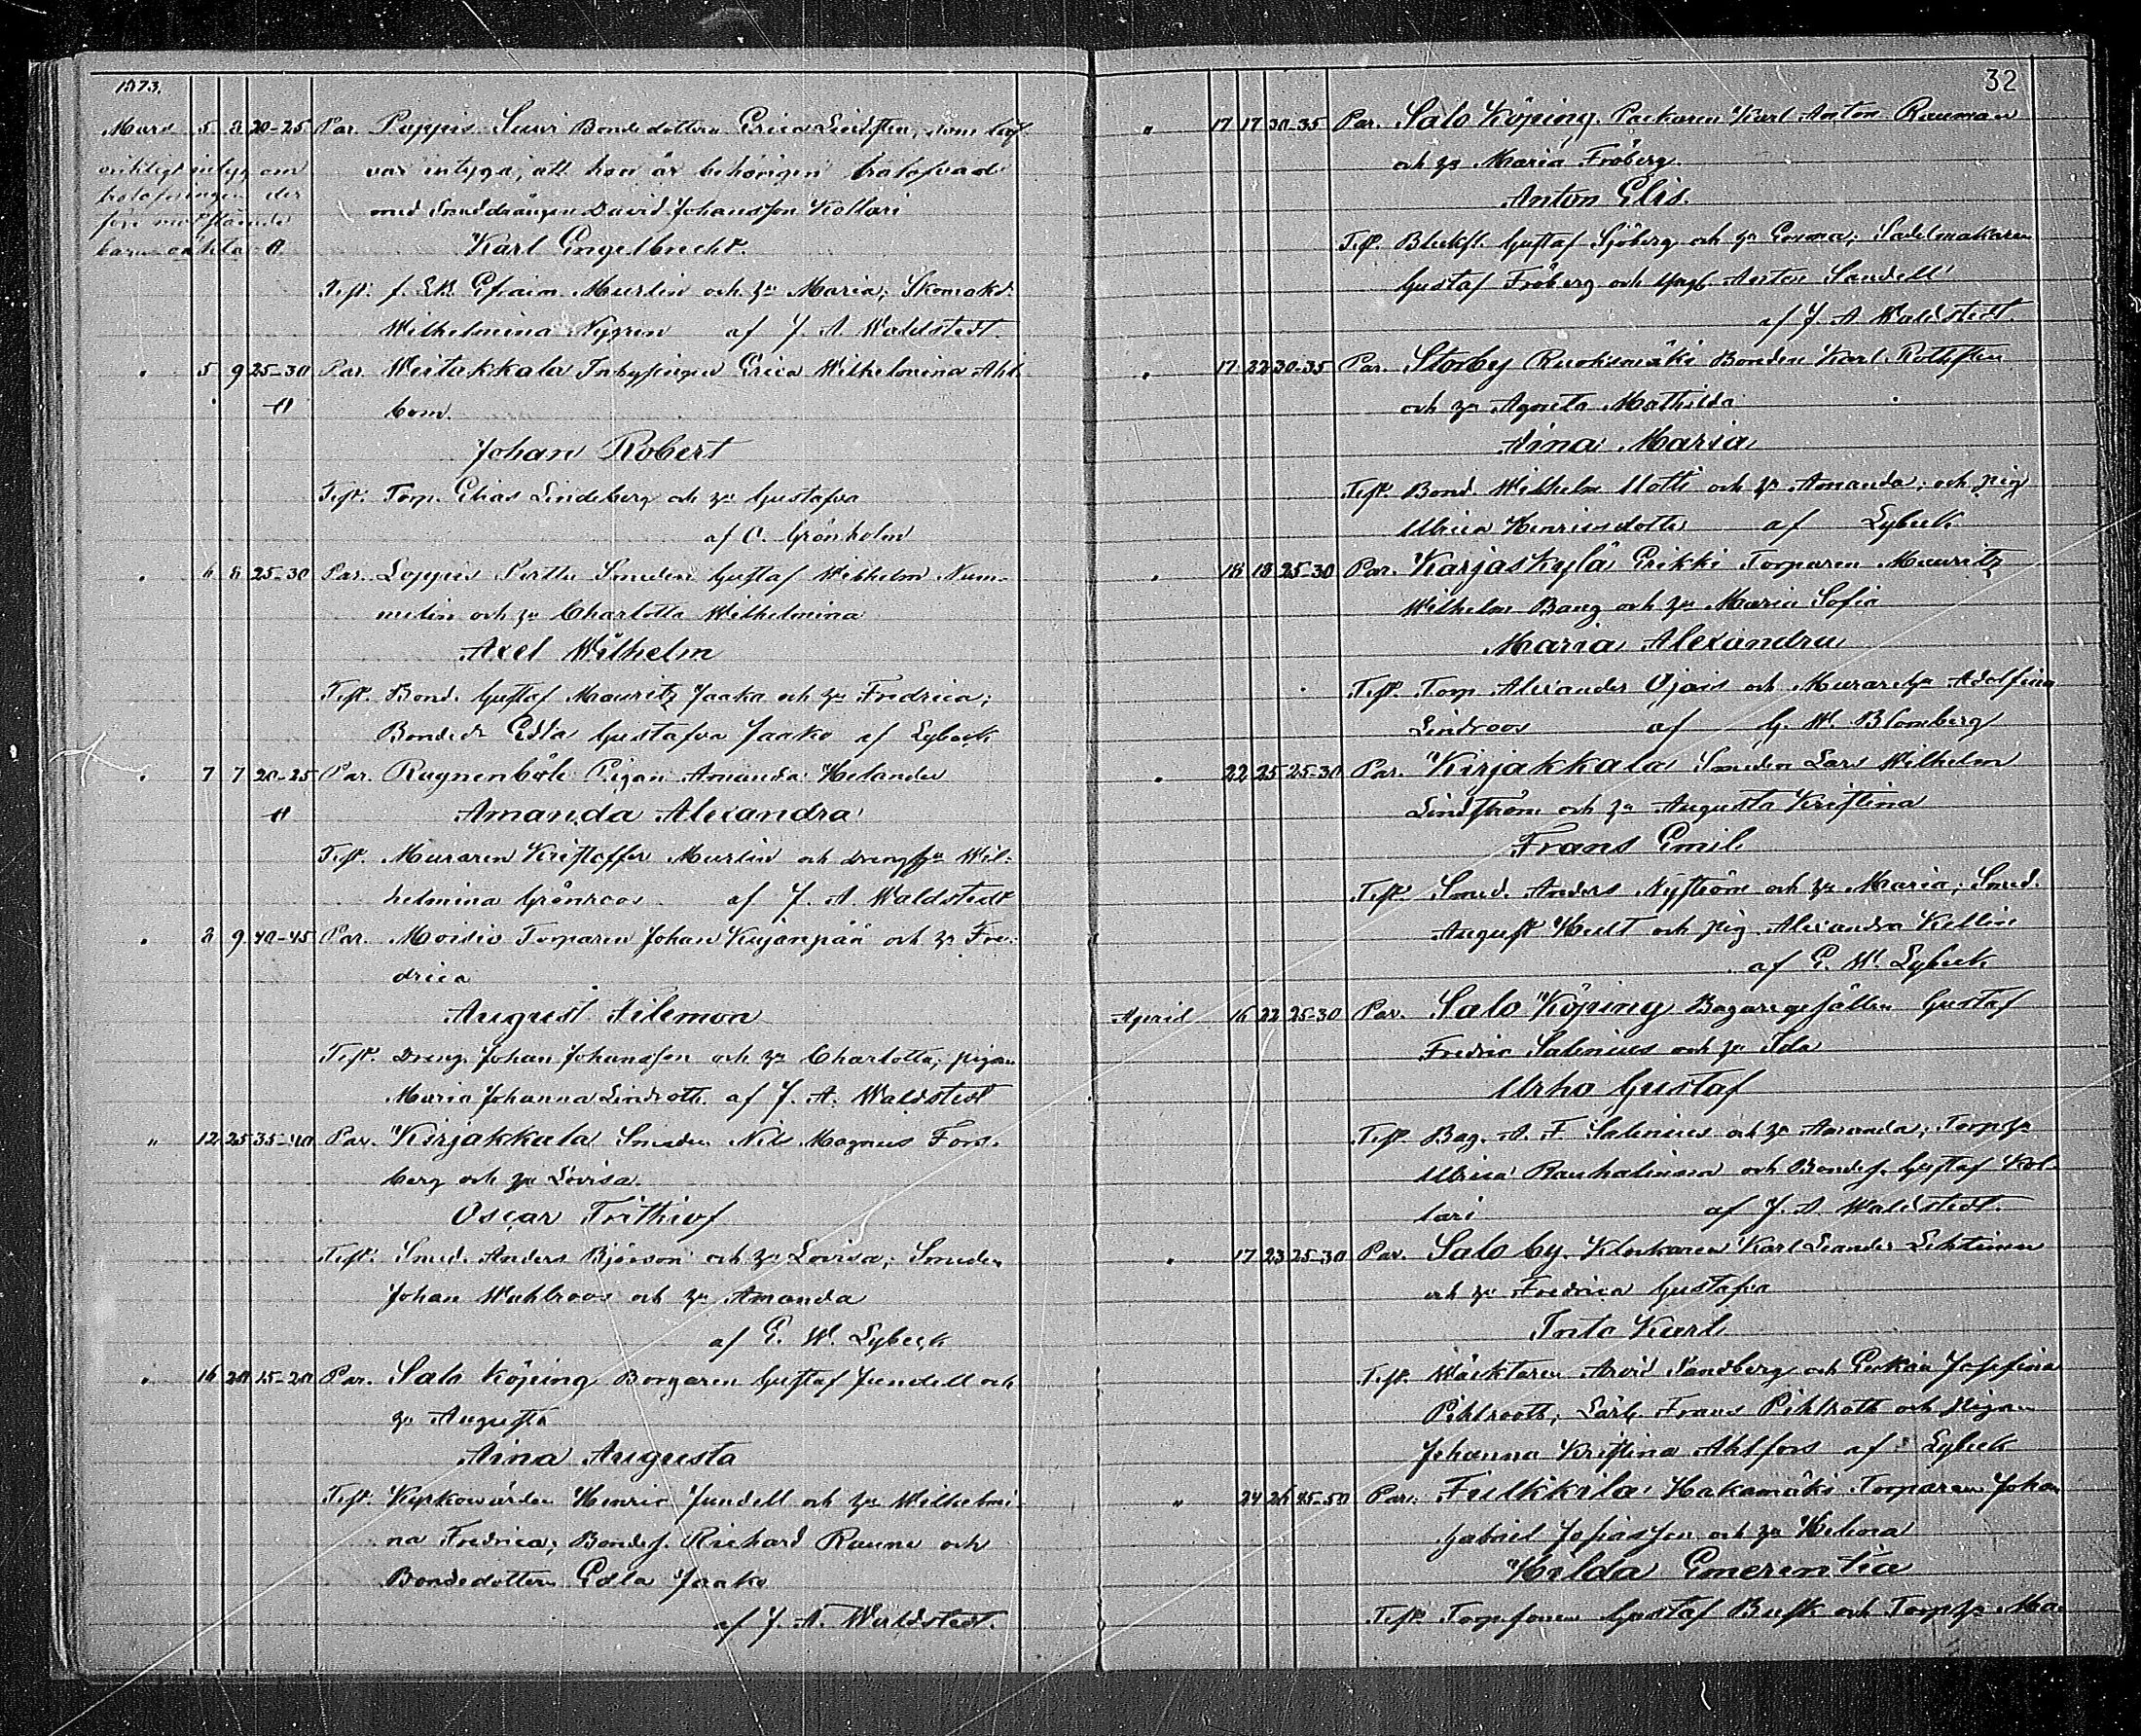 1873.
Mars 5 8 20-25 Par. Pappis Suvi Bondedottern Erica Lindsten, som låf
var intyga, att hon är behörigen trolofvad
med Smeddrängen David Johansson Kollari
riktigt intyg om
trolofningen
före
barn äkta
Karl Engelbrecht.
Test. f. Efraim Murlin och h:u Maria; Skomakd.
Wilhelmina Nygren af J. A. Waldstedt.
" 5 9 25-30 Par. Weitakkala Inhysingen Erica Wilhelmina Ahl-
bom.
Johan Robert
Test. Torp. Elias Lindeberg och h:u Gustafva
af C. Grönholm
" 6 8 25-30 Par. Loppis Perttu Smeden Gustaf Wilhelm Num-
melin och h:u Charlotta Wilhelmina
Axel Wilhelm
Test. Bond. Gustaf Mauritz Jaaka och h:u Fredrica;
Bonded:r Edla Gustafva Jaako af Lybeck
" 7 7 20-25 Par. Rugnenböle Pigan Amanda Helander
Amanda Alexandra
Test. Muraren Kristoffer Murlin och drengh:u Wil-
helmina Grönroos af J. A. Waldstedt
" 8 9 40-45 Par. Moisio Torparen Johan Kujanpää och h:u Fre-
drica
August Filemon
Test. Dreng. Johan Johansson och h:u Charlotta; pigan
Maria Johanna Lindroth. af J. A. Waldstedt
" 12 25 35-40 Par. Kirjakkala Smeden Nils Magnus Fors-
berg och h:u Lovisa
Oscar Frithiof
Test. Smed. Anders Björson och h:u Lovisa; Smeden
Johan Wahlroos och h:u Amanda
af G. W. Lybeck
" 16 20 15-20 Par. Salo Köping Borgaren Gustaf Jundell och
h:u Augusta
Aina Augusta
Test. Kyrkowärden Henric Jundell och h:u Wilhelmi-
na Fredrica; Bondes. Richard Raune och
Bondedottern Edla Jaako
af J. A. Waldstedt.
32
" 17 17 30-35 Par. Salo Köping. Packaren Karl Anton Rauman
och h:u Maria Fröberg.
Anton Elis.
Test. Bleksl. Gustaf Sjöberg och h:u Emma; Sadelmakaren
Gustaf Fröberg och Yngl. Anton Sandell
af J. A. Waldstedt.
" 17 22 30-35 Par. Storby Ruoksmäki Bonden Karl Rothsten
och h:u Agneta Mathilda
Aina Maria
Test. Bond. Wilhelm Uotti och h:u Amanda; och pig
Ulrica Henricsdotter af Lybeck
" 18 18 25-30 Par. Karjaskylä Erikki Torparen Mauritz
Wilhelm Bang och h:u Maria Sofia
Maria Alexandra
Test. Torp Alexander Ojais och Murareh:u Adolfina
Lindroos af G. W. Blomberg
" 22 25 25-30 Par. Kirjakkala Smeden Lars Wilhelm
Lindström och h:u Augusta Kristina
Frans Emil
Test. Smed. Anders Nyström och h:u Maria; Smed.
August Hult och pig. Alexandra Kellin
af G. W. Lybeck
April 16 22 25-30 Par. Salo Köping Bagaregesällen Gustaf
Fredric Salenius och h:u Ida
Urho Gustaf
Test. Bag. A. F. Salenius och h:u Amanda; Torph:u
Ulrica Rauhalinna och Bondes. Gustaf Kol-
lari af J. A. Waldstedt.
" 17 23 25-30 Par. Salo by. Klockaren Karl Leander Lehtinen
och h:u Fredrica Gustafva
Karl
Test. Wäktaren Arvid Sandberg och Enkan Josefina
Pihlrooth; Lärl. Frans Pihlroth och pigan
Johanna Kristina Ahlfors af Lybeck
" 24 26 45-50 Par. Fulkkila Hakamäki Torparen Johan
Gabriel Josiasson och h:u Helena
Hilda Emerentia
Test. Torpsonen Gustaf Busk och Torph:u Ma-